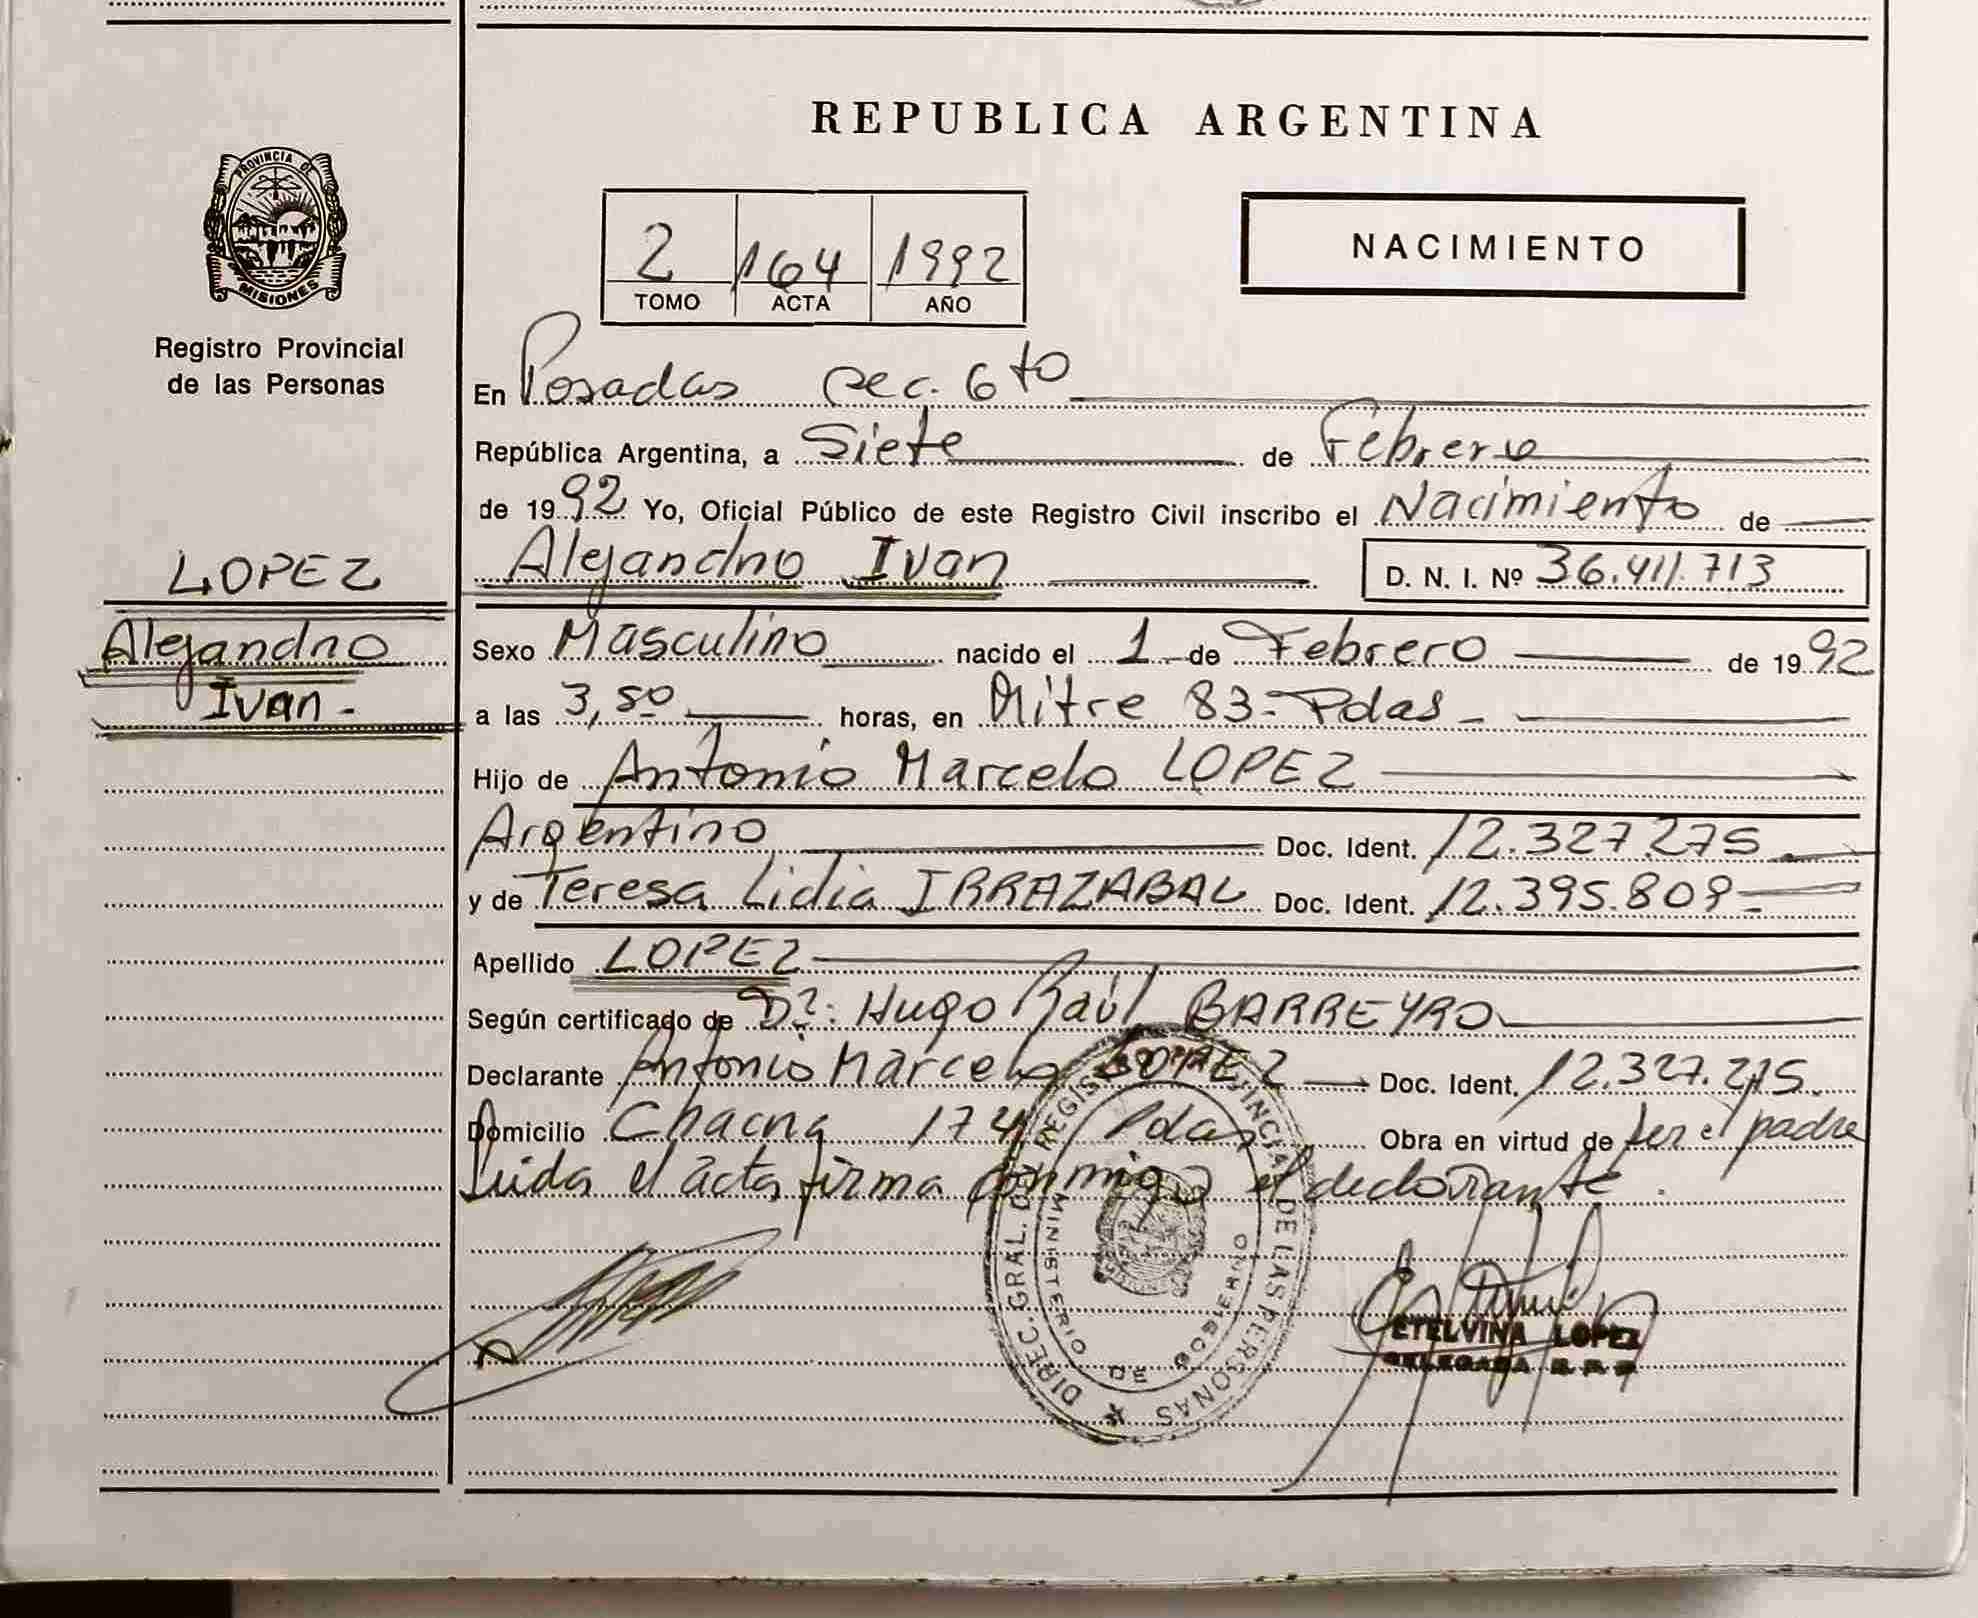 REPUBLICA ARGENTINA
PROVINCIA DE
MISIONES
Registro Provincial
de las Personas
2 164 1992
TOMO ACTA AÑO
NACIMIENTO
En Posadas sec. 6to
República Argentina, a Siete de Febrero
de 1992 Yo, Oficial Público de este Registro Civil inscribo el Nacimiento de
Alejandro Ivan D. N. I. Nº 36.411.713
LOPEZ
Alejandro
Ivan -
Sexo Masculino nacido el 1 de Febrero de 1992
a las 3,50 horas, en Mitre 83 - Pdas -
Hijo de Antonio Marcelo LOPEZ
Argentino Doc. Ident. 12.327.275
y de Teresa Lidia IRRAZABAL Doc. Ident. 12.395.809
Apellido LOPEZ
Según certificado de Dr: Hugo Raúl BARREYRO
Declarante Antonio Marcelo LOPEZ Doc. Ident. 12.327.275
Domicilio 174 Pdas Obra en virtud de ser el padre
Leida el acta firma conmigo el declarante.
DIREC. GRAL. DEL REGISTRO PROVINCIAL DE LAS PERSONAS
MINISTERIO DE GOBIERNO
ETELVINA LOPEZ
DELEGADA R.P.P